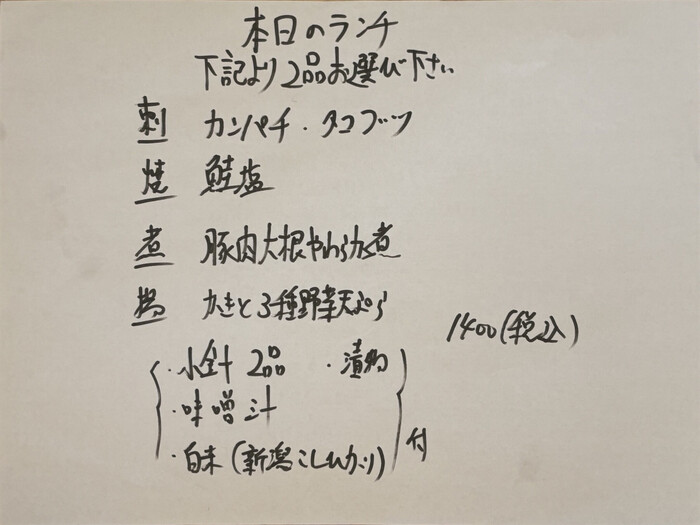 本日のランチ
下記より2品お選び下さい
刺 カンパチ・タコブツ
焼 鮭塩
煮 豚肉大根やわらか煮
揚 かきと3種野菜天ぷら
1400(税込)
・小鉢 2品 ・漬物
・味噌汁
・白米(新潟こしひかり)
付